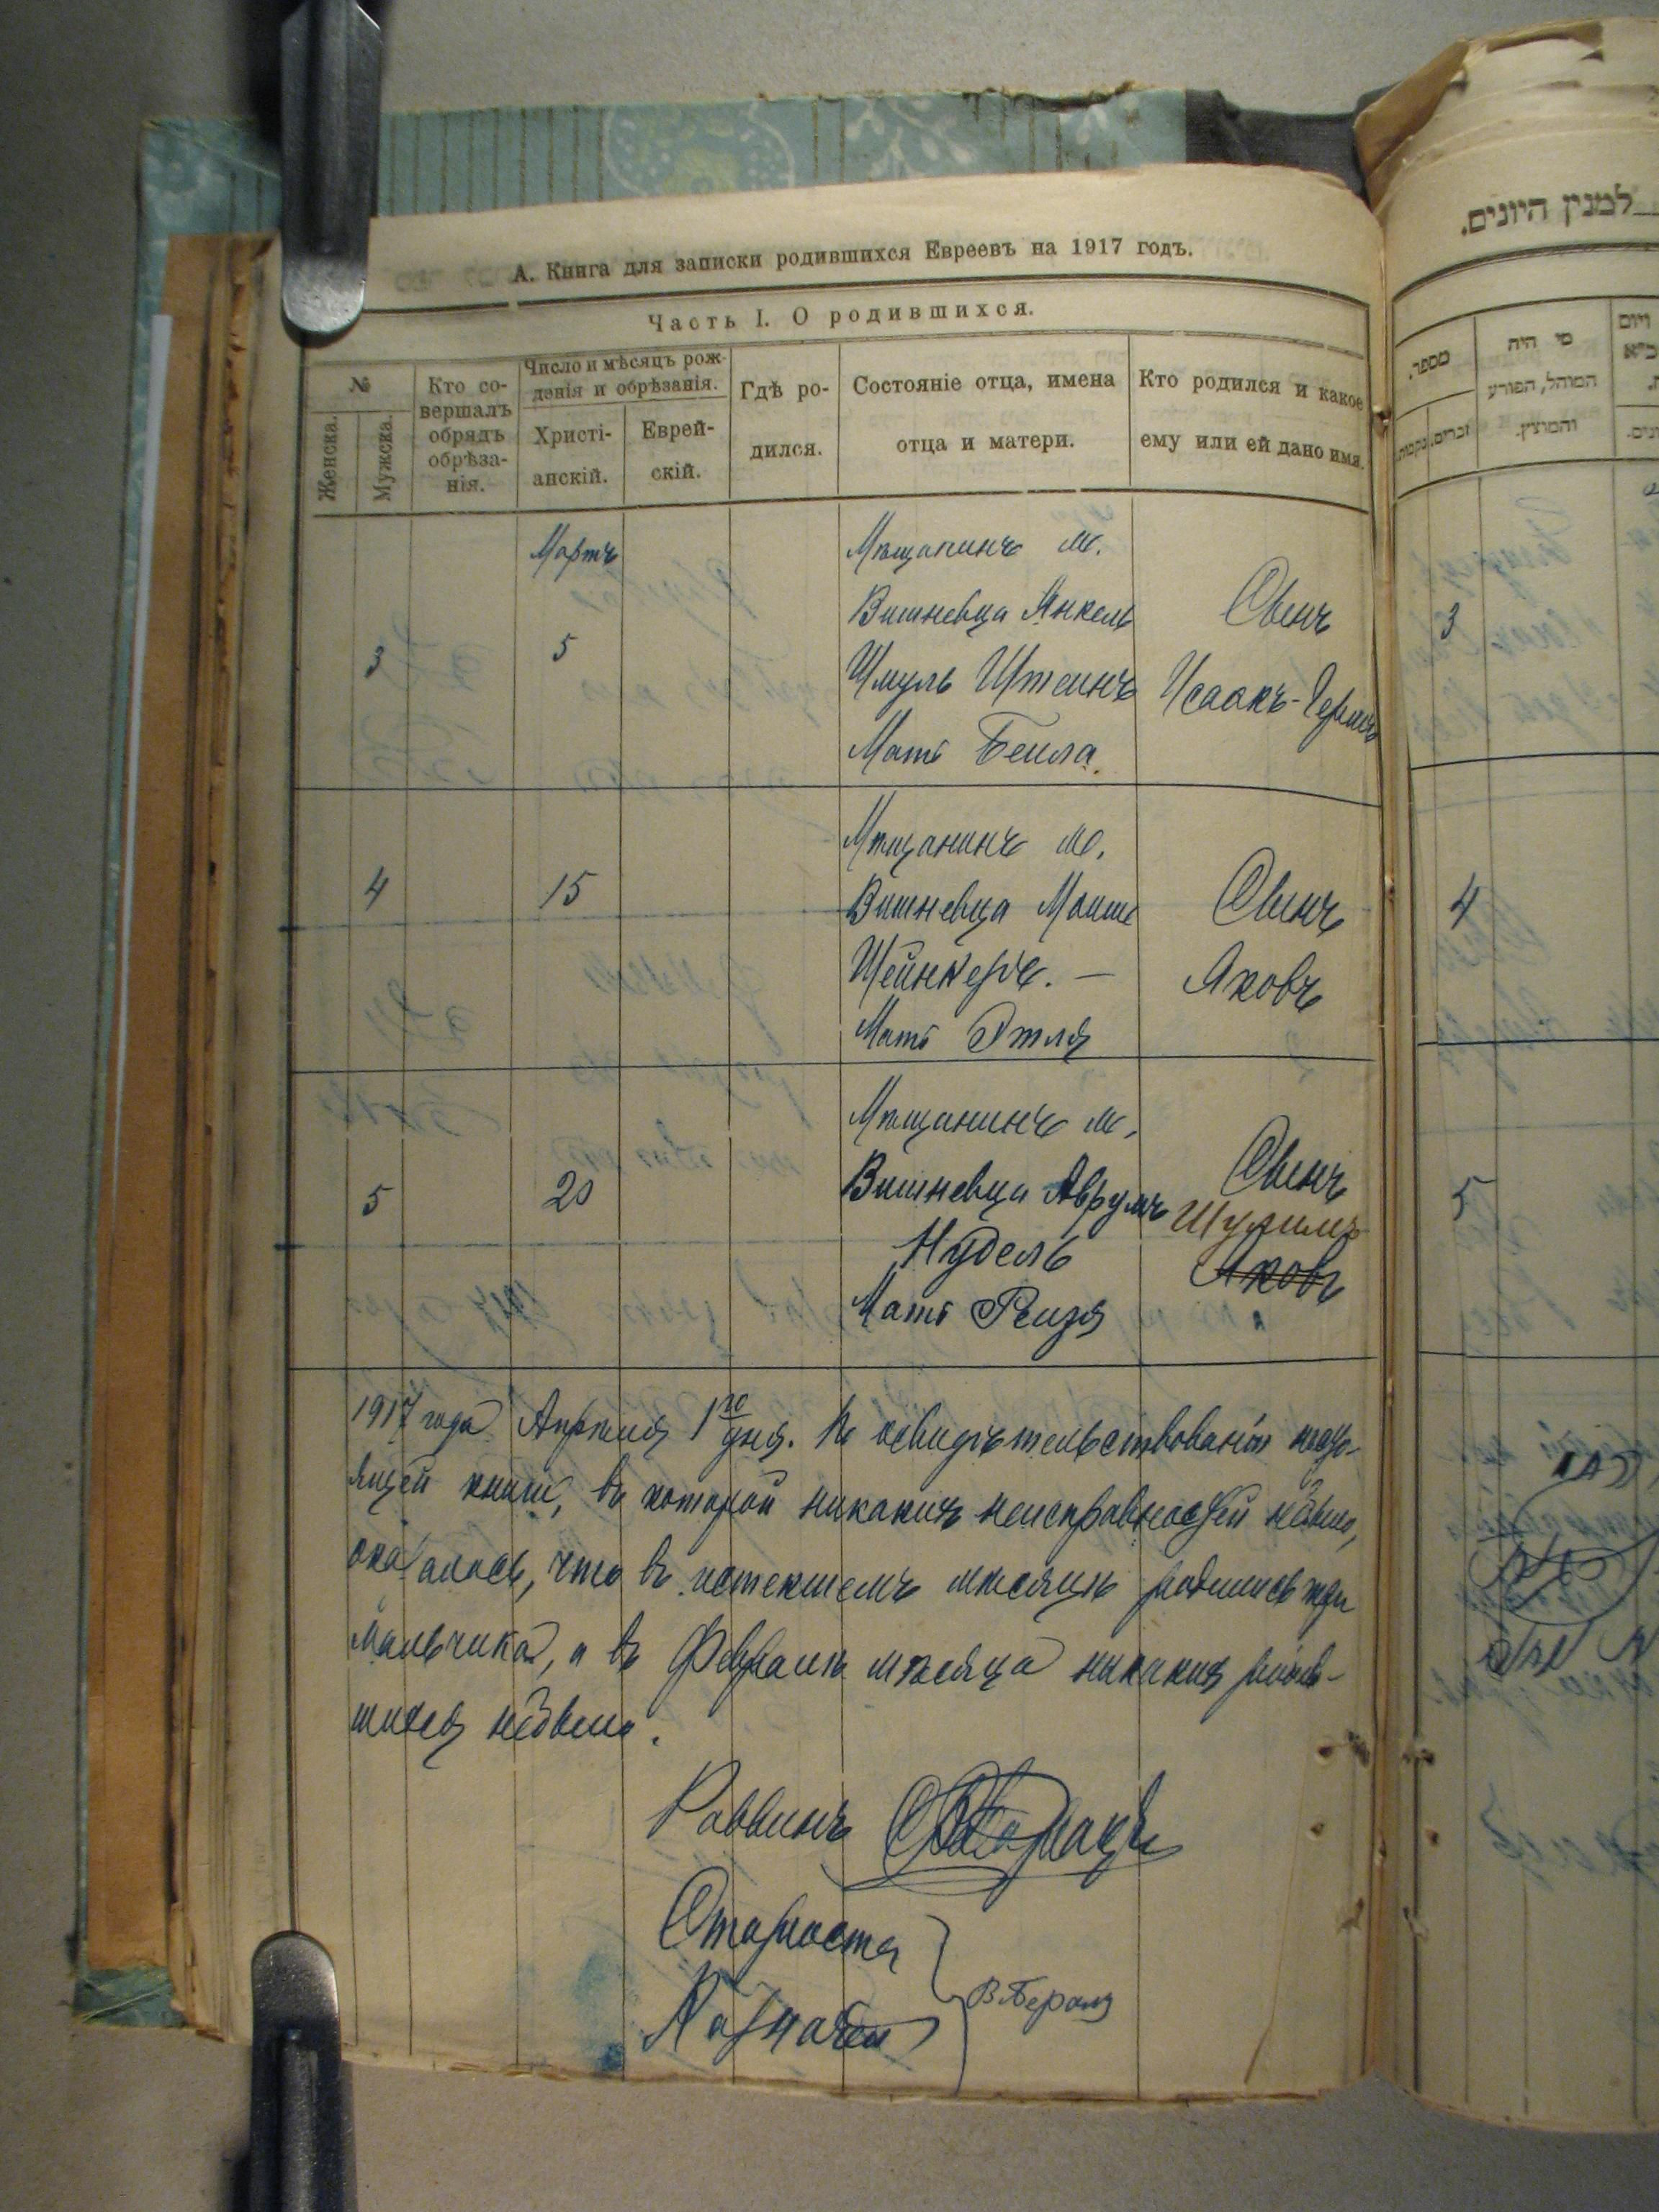 А. Книга для записки родившихся Евреевъ на 1917 годъ.
Часть I. О родившихся.
№
Женска.
Мужска.
Кто со-
вершалъ
обрядъ
обрѣза-
нія.
Число и мѣсяцъ рож-
денія и обрѣзанія.
Христі-
анскій.
Еврей-
скій.
Гдѣ ро-
дился.
Состояніе отца, имена
отца и матери.
Кто родился и какое
ему или ей дано имя.
Мартъ
3
5
Мѣщанинъ м.
Вишневца Янкель
Шмуль Штеинъ
Мать Беила
Сынъ
Исаакъ-
4
15
Мѣщанинъ м.
Вишневца Моише
Мать Этля
Сынъ
Яковъ
5
20
Мѣщанинъ м.
Вишневца Аврумъ
Нудель
Мать Реизя
Сынъ
Шулимъ
Яковъ
1917 года Апрѣля 1го дня. По освидѣтельствованіи насто-
ящей книги, въ которой никакихъ неисправностей небыло,
оказалось, что въ истекшемъ мѣсяцѣ родились три
мальчика, а въ Февралѣ мѣсяца никакихъ родив-
шихся небыло.
Раввинъ
Староста
Казначей
למנין היונים.
מספר.
זכרים.
נקבות.
מי היה
המוהל, הפורע
והמוצץ.
3
4
5